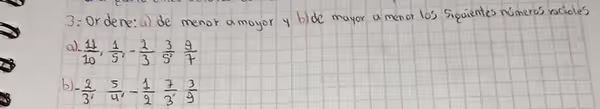 3: Ordene: a) de menor a mayor y b) de mayor a menor los siguientes números racioles
a) 11/10, 1/5, -2/3 3/5, 9/7
b) -2/3, 5/4, -1/2 7/3, 3/9